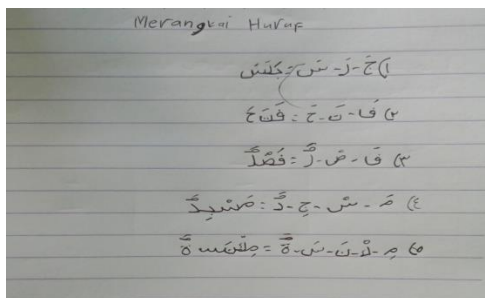 Merangkai Huruf
١) جَ - لَ - سَ = جَلَسَ
٢) فَ - تَ - حَ = فَتَحَ
٣) فَ - صْ - لٌ = فَصْلٌ
٤) مَ - سْ - جِ - دٌ = مَسْجِدٌ
٥) مِ - كْ - نَ - سَ - ةٌ = مِكْنَسَةٌ